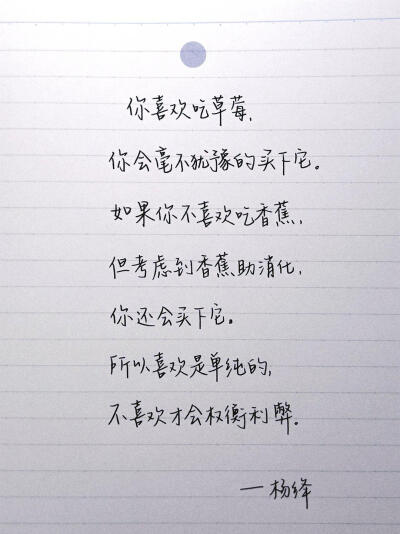 你喜欢吃草莓,
你会毫不犹豫的买下它。
如果你不喜欢吃香蕉,
但考虑到香蕉助消化,
你还会买下它。
所以喜欢是单纯的,
不喜欢才会权衡利弊。
—杨绛